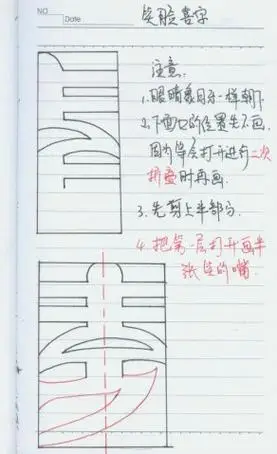 NO.
Date
笑脸喜字
注意:
1.眼睛象月牙一样朝下
2.下面口的位置先不画
因为等会打开进行二次
折叠时再画.
3.先剪上半部分.
4.把第一层打开画半
张红的嘴.